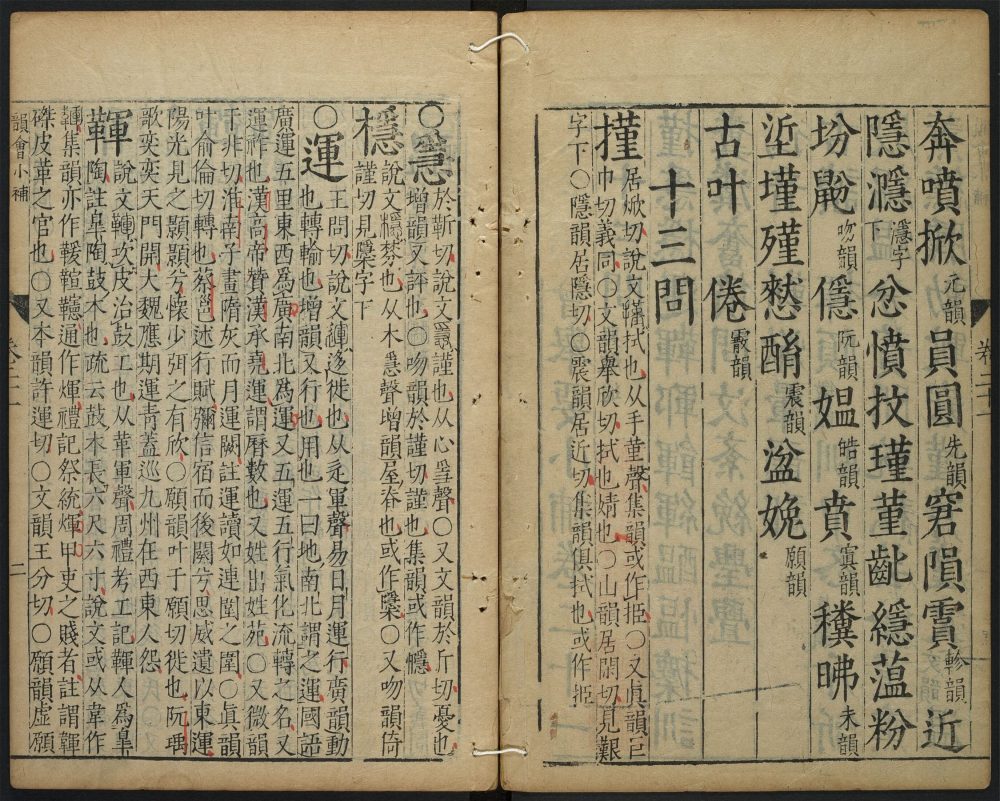 奔噴掀元韻員圓先韻窘隕霣軫韻近
隱濦隱字下忿憤抆瑾菫齔縕薀粉
坋鼢吻韻偃阮韻媪皓韻賁寘韻糞昲未韻
坙墐殣憗酳震韻湓娩願韻
古叶 倦霰韻
十三問
攇居焮切說文 拭也从手堇聲集韻或作㧒○又真韻巨
巾切義同○文韻舉欣切拭也婧也○山韻居閑切見艱
字下○隱韻居隱切○震韻居近切集韻俱拭也或作㧒
○㥯於靳切說文 謹也从心㥯聲○又文韻於斤切憂也
增韻又評也○吻韻於謹切謹也集韻或作㦩
檼說文檼棼也从木㥯聲增韻屋脊也或作檃○又吻韻倚
謹切見檃字下
○運王問切說文運迻徙也从辵軍聲易日月運行廣韻動
也轉輸也增韻又行也用也一曰地南北謂之運國語
廣運五里東西爲廣南北為運又五運五行氣化流轉之名又
運祚也漢高帝贊漢承堯運謂曆數也又姓出姓苑○又微韻
于非切淮南子畫隋灰而月運闕註運讀如連圍之圍○真韻
叶俞倫切轉也蔡邕述行賦彌信宿而後闋兮思威遺以東運
陽光見之顥顥兮懷少弭之有欣○願韻叶于願切徙也阮瑀
歌奕奕天門開大魏應期運青蓋巡九州在西東人怨
韗說文韗攻皮治鼓工也从革軍聲周禮考工記韗人為皐
陶註皐陶鼓木也疏云鼓木長六尺六寸說文或从韋作
韗集韻亦作鞰 通作煇禮記祭統煇甲吏之賤者註謂韗
磔皮革之官也○又本韻許運切○文韻王分切○願韻虛願
韻會小補 二
卷二十一